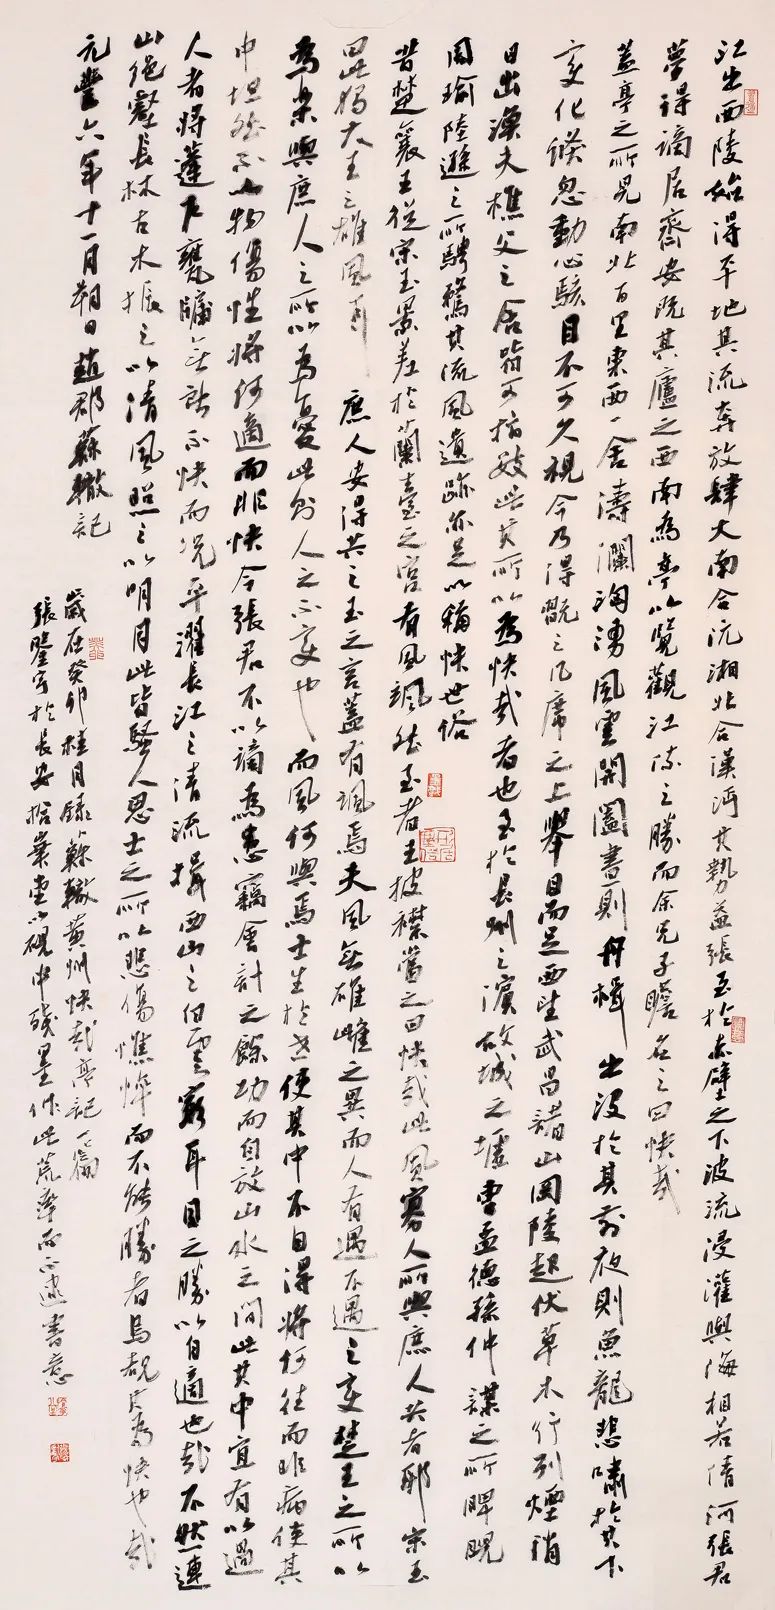 江出西陵始得平地其流奔放肆大南合沅湘北合漢沔其勢益張至於赤壁之下波流浸灌與海相若清河張君
夢得謫居齊安既其廬之西南為亭以覽觀江流之勝而余兄子瞻名之曰快哉
蓋亭之所見南北百里東西一舍濤瀾洶湧風雲開闔晝則舟楫出没於其前夜則魚龍悲嘯於其下
變化倏忽動心駭目不可久視今乃得翫之几席之上舉目而足西望武昌諸山岡陵起伏草木行列煙消
日出漁夫樵父之舍皆可指數此其所以為快哉者也至於長州之濱故城之墟曹孟德孫仲謀之所睥睨
周瑜陸遜之所騁騖其流風遺跡亦足以稱快世俗
昔楚襄王從宋玉景差於蘭臺之宮有風颯然至者王披襟當之曰快哉此風寡人所與庶人共者耶宋玉
曰此獨大王之雄風耳庶人安得共之玉之言蓋有諷焉夫風無雄雌之異而人有遇不遇之變楚王之所以
為樂與庶人之所以為憂此則人之變也而風何與焉士生於世使其中不自得將何往而非病使其
中坦然不以物傷性將何適而非快今張君不以謫為患竊會計之餘功而自放山水之間此其中宜有以過
人者將蓬戶甕牖無所不快而況乎濯長江之清流揖西山之白雲窮耳目之勝以自適也哉不然連
山絕壑長林古木振之以清風照之以明月此皆騷人思士之所以悲傷憔悴而不能勝者烏睹其為快也哉
元豐六年十一月朔日趙郡蘇轍記
歲在癸卯桂月錄蘇轍黃州快哉亭記一篇
張鑒宇於長安拾葉堂以硯中殘墨作此荒率而不逮書意